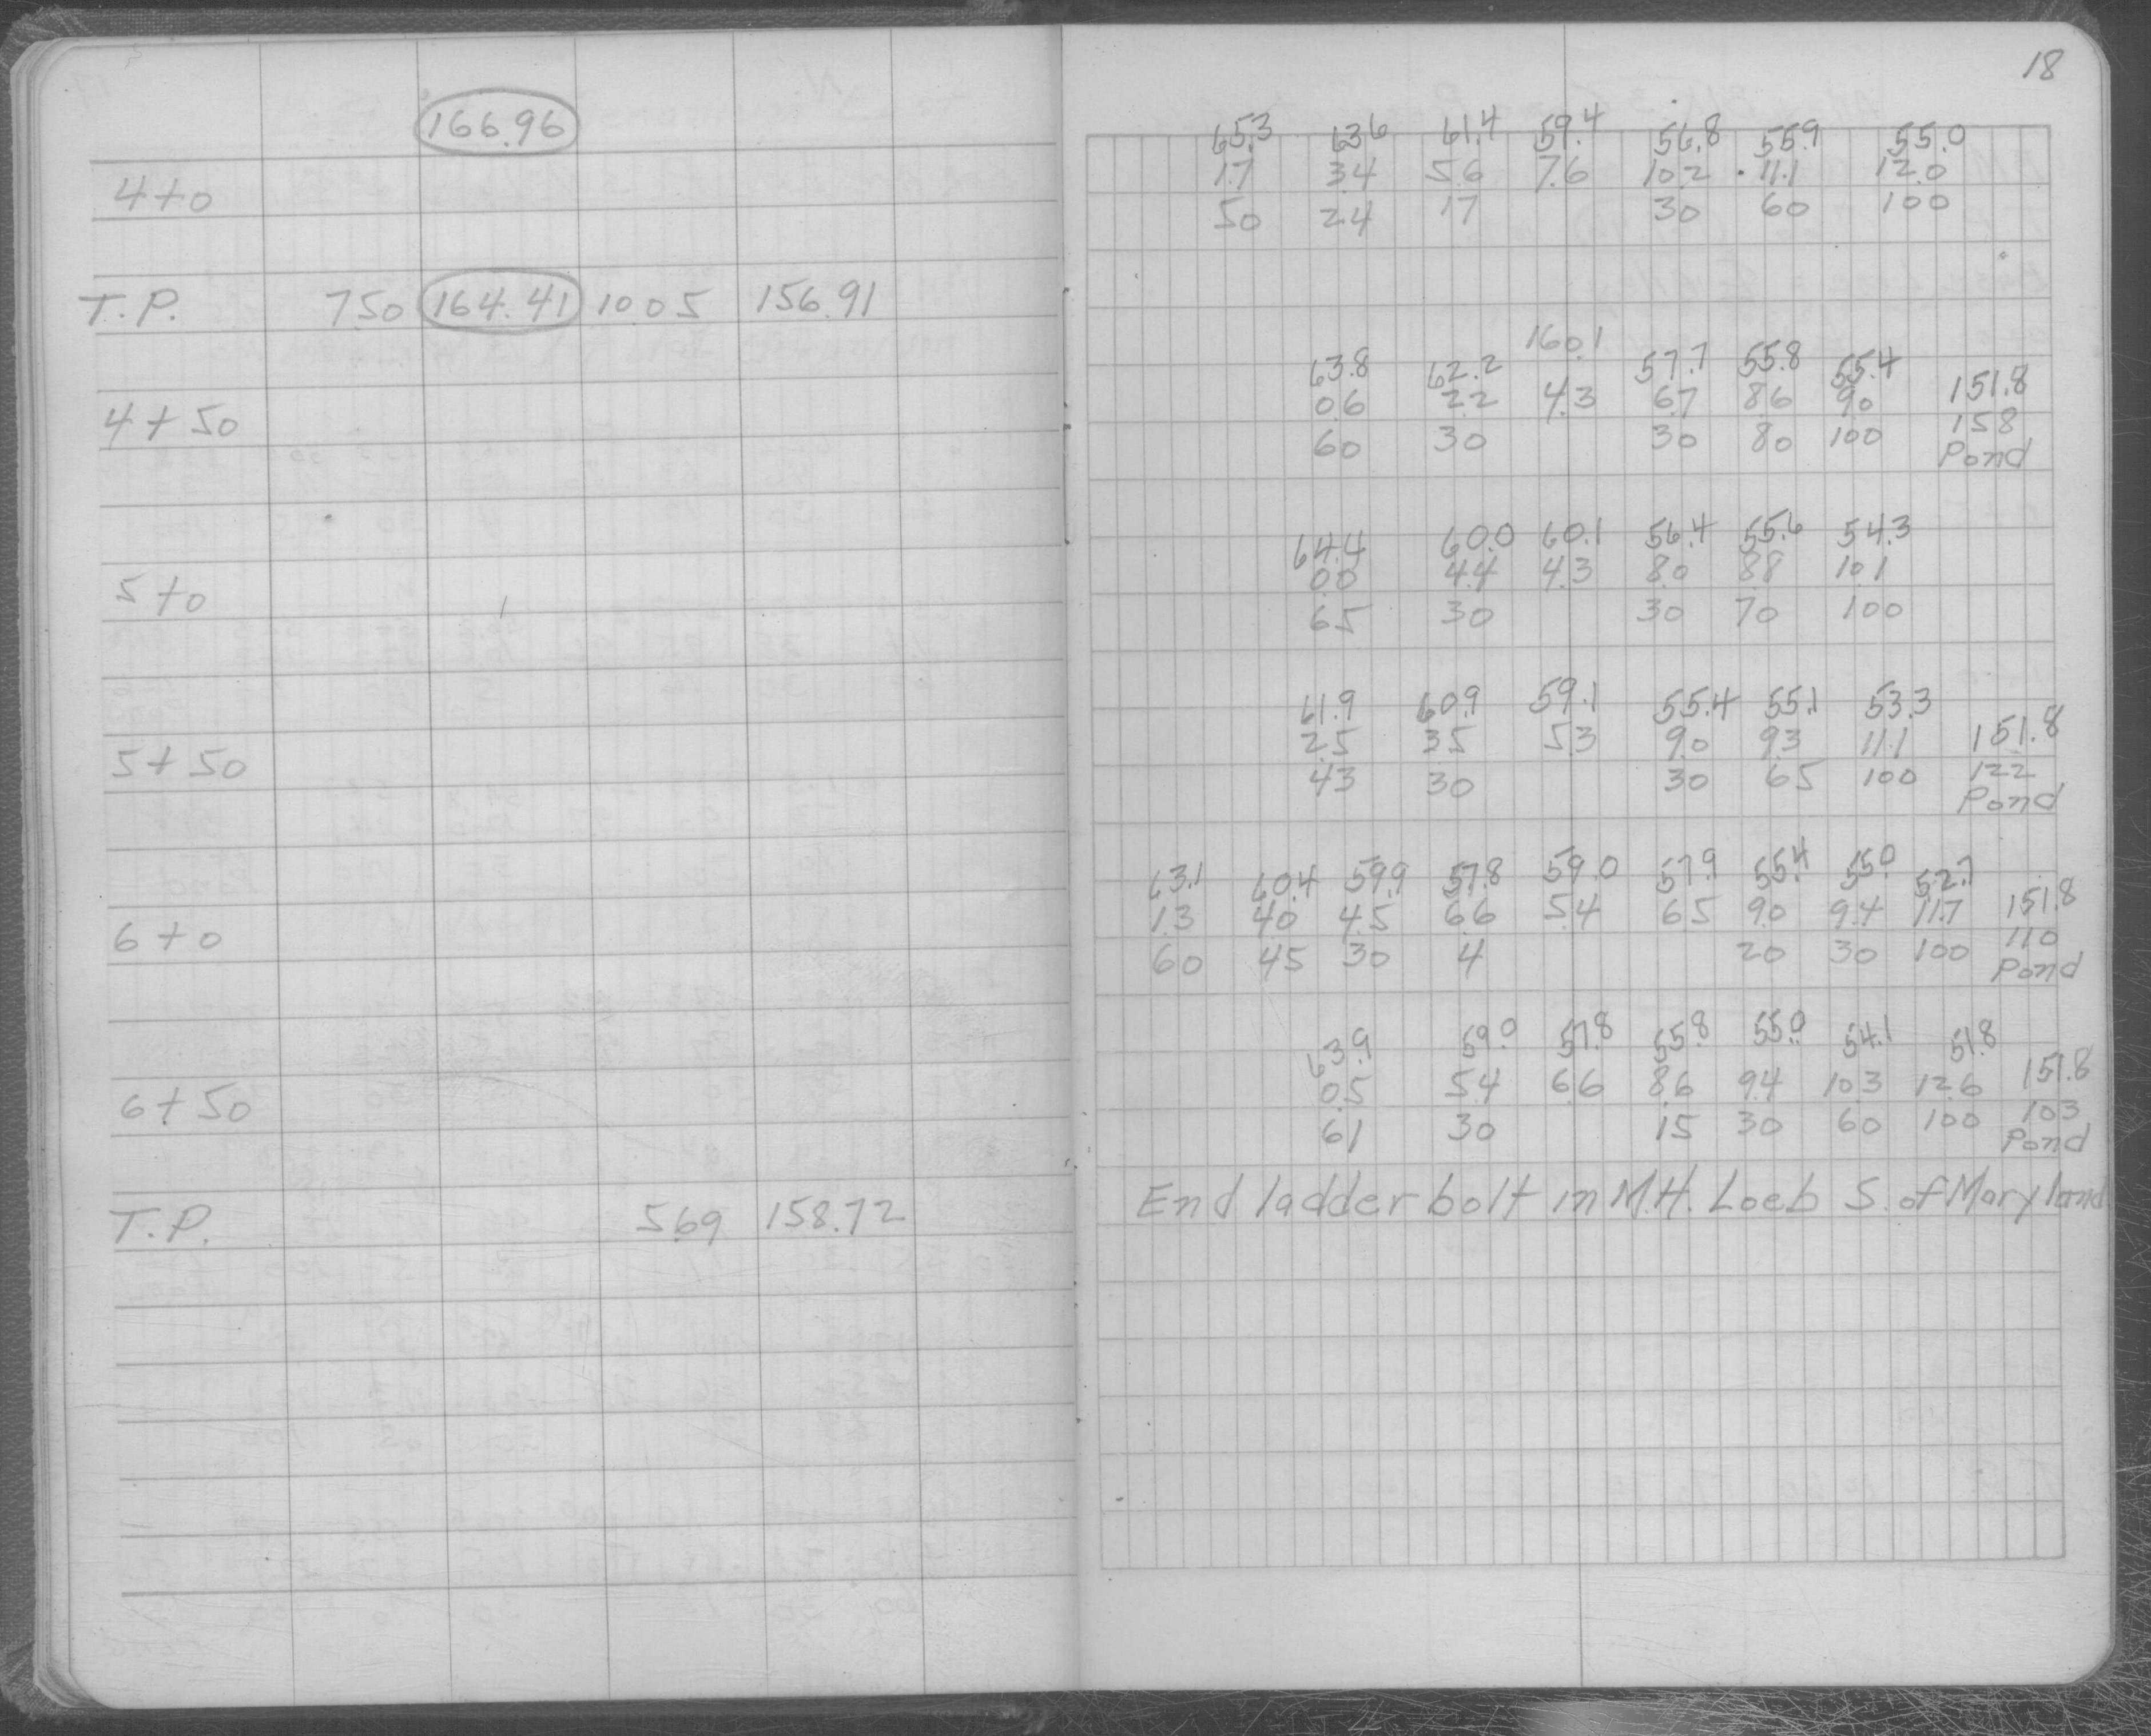 18
166.96
65.3 63.6 61.4 59.4 56.8 55.9 55.0
4+0 1.7 3.4 5.6 7.6 10.2 11.1 12.0
50 24 17 30 60 100
T.P. 7.50 164.41 10.05 156.91
160.1
63.8 62.2 57.7 55.8 55.4 151.8
4+50 0.6 2.2 4.3 6.7 8.6 9.0 158
60 30 30 80 100 Pond
64.4 60.0 60.1 56.4 55.6 54.3
5+0 0.0 4.4 4.3 8.0 8.8 10.1
65 30 30 70 100
61.9 60.9 59.1 55.4 55.1 53.3 151.8
5+50 2.5 3.5 5.3 9.0 9.3 11.1 122
43 30 30 65 100 Pond
63.1 60.4 59.9 57.8 59.0 57.9 55.4 55.0 52.7 151.8
6+0 1.3 4.0 4.5 6.6 5.4 6.5 9.0 9.4 11.7 110
60 45 30 4 20 30 100 Pond
63.9 59.0 57.8 55.8 55.0 54.1 51.8 151.8
6+50 0.5 5.4 6.6 8.6 9.4 10.3 12.6 103
61 30 15 30 60 100 Pond
T.P. 5.69 158.72 End ladder bolt in M.H. Loeb S. of Maryland